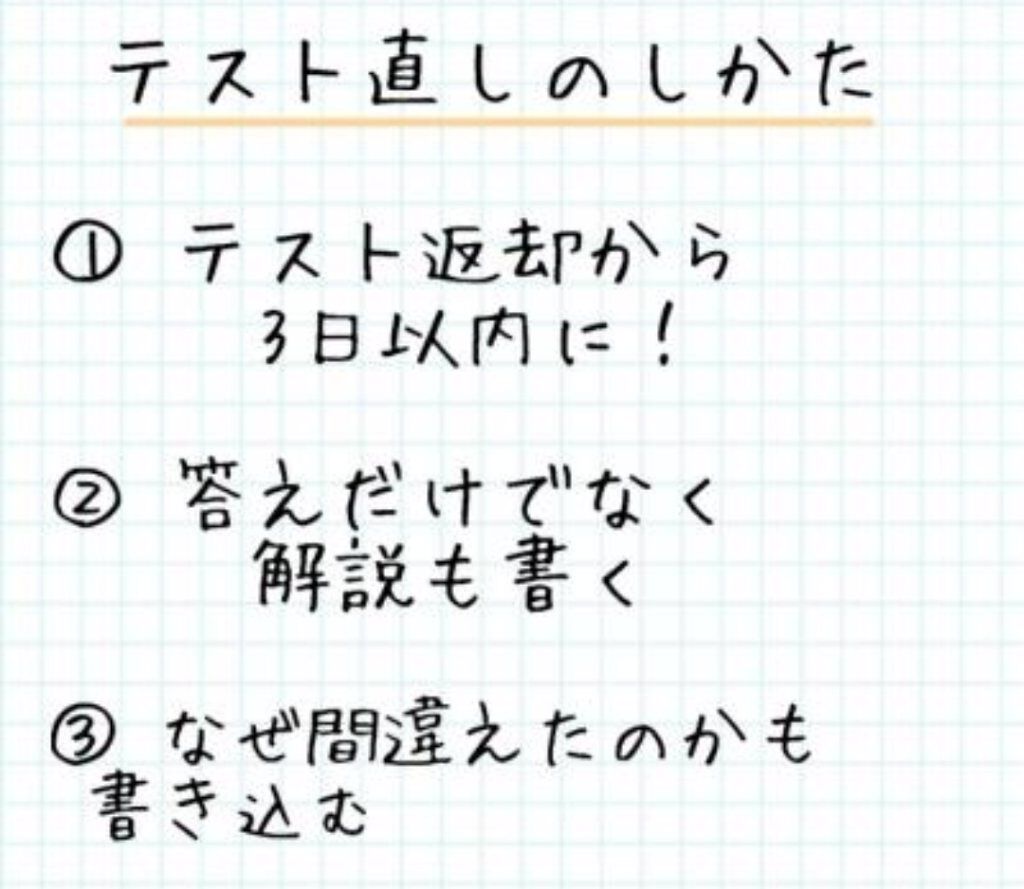 テスト直しのしかた
① テスト返却から
3日以内に!
② 答えだけでなく
解説も書く
③ なぜ間違えたのかも
書き込む